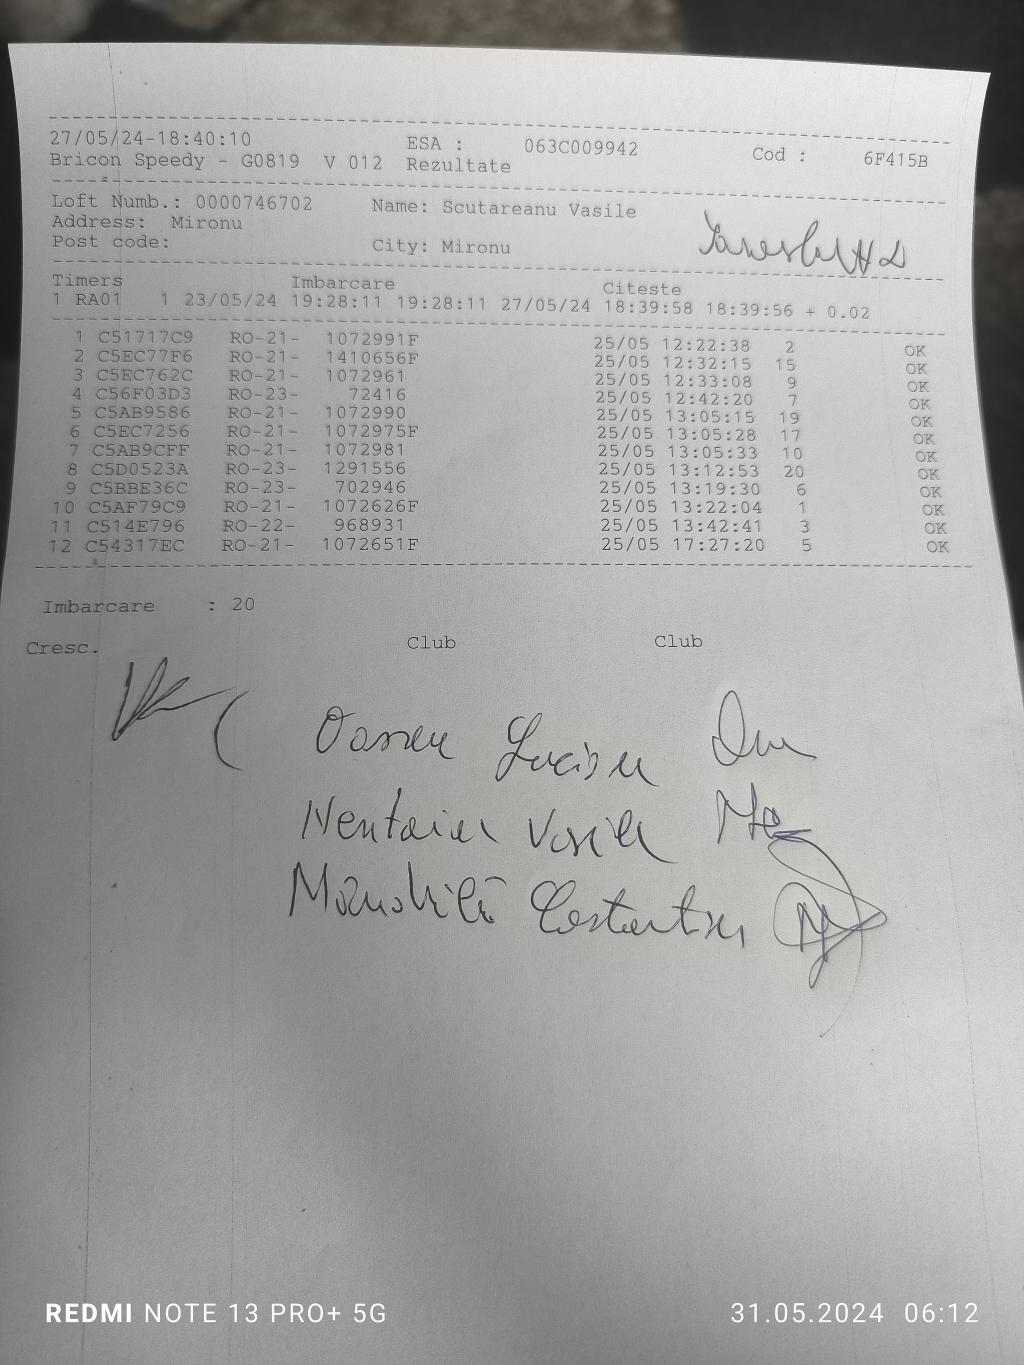 27/05/24-18:40:10 ESA : 063C009942 Cod : 6F415B
Bricon Speedy - G0819 V 012 Rezultate
Loft Numb.: 0000746702 Name: Scutareanu Vasile
Address: Mironu
Post code: City: Mironu
Timers Imbarcare Citeste
1 RA01 1 23/05/24 19:28:11 19:28:11 27/05/24 18:39:58 18:39:56 + 0.02
1 C51717C9 RO-21- 1072991F 25/05 12:22:38 2 OK
2 C5EC77F6 RO-21- 1410656F 25/05 12:32:15 15 OK
3 C5EC762C RO-21- 1072961 25/05 12:33:08 9 OK
4 C56F03D3 RO-23- 72416 25/05 12:42:20 7 OK
5 C5AB9586 RO-21- 1072990 25/05 13:05:15 19 OK
6 C5EC7256 RO-21- 1072975F 25/05 13:05:28 17 OK
7 C5AB9CFF RO-21- 1072981 25/05 13:05:33 10 OK
8 C5D0523A RO-23- 1291556 25/05 13:12:53 20 OK
9 C5BBE36C RO-23- 702946 25/05 13:19:30 6 OK
10 C5AF79C9 RO-21- 1072626F 25/05 13:22:04 1 OK
11 C514E796 RO-22- 968931 25/05 13:42:41 3 OK
12 C54317EC RO-21- 1072651F 25/05 17:27:20 5 OK
Imbarcare : 20
Cresc. Club Club
Vasile
REDMI NOTE 13 PRO+ 5G 31.05.2024 06:12